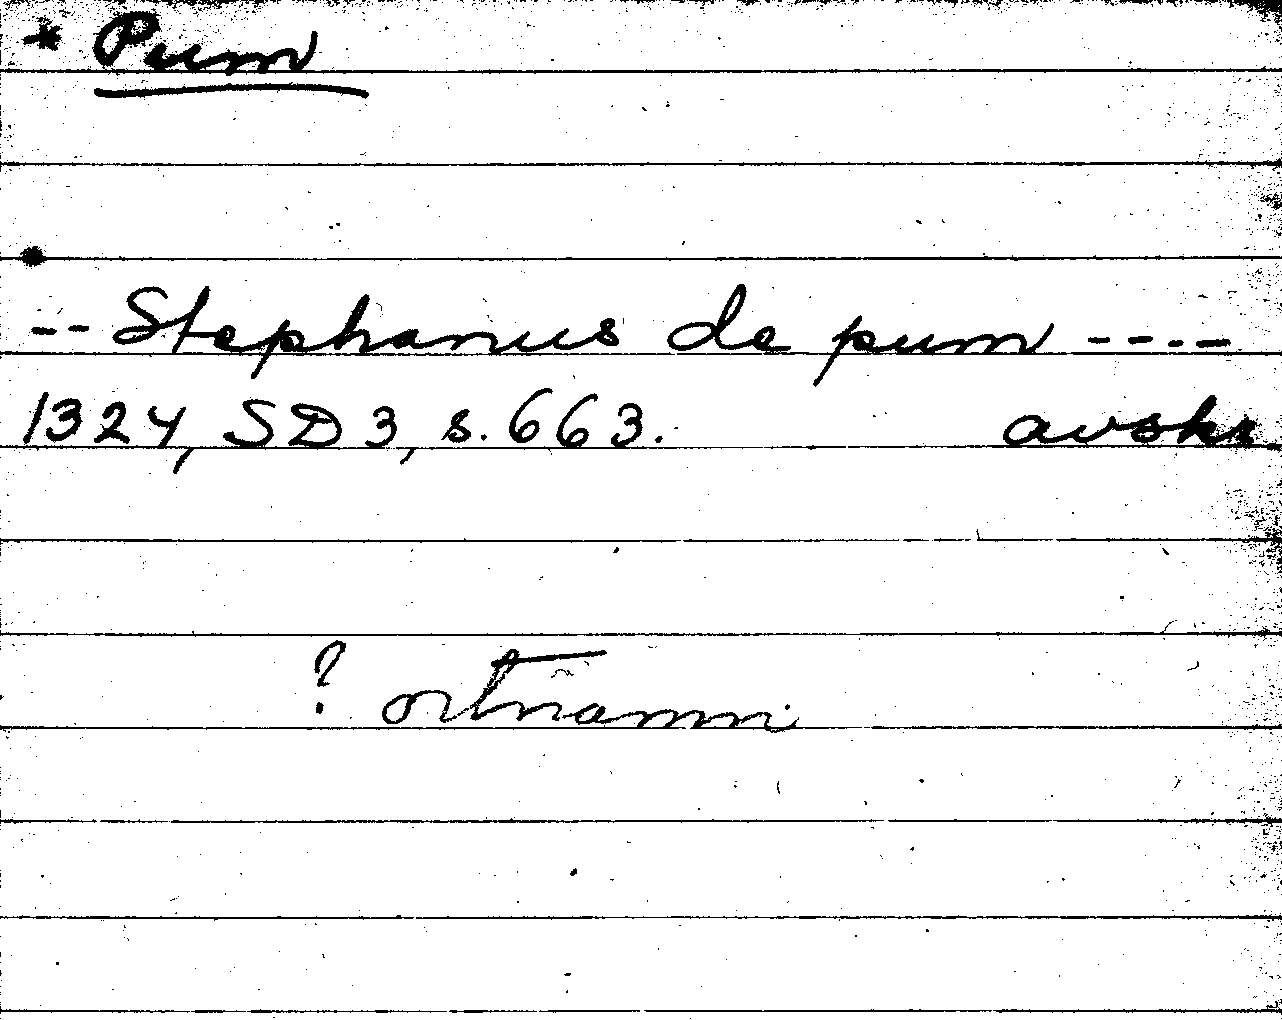 * Pum
-- Stephanus de pum ----
1324, SD 3, s. 663. avskr
? ortnamn